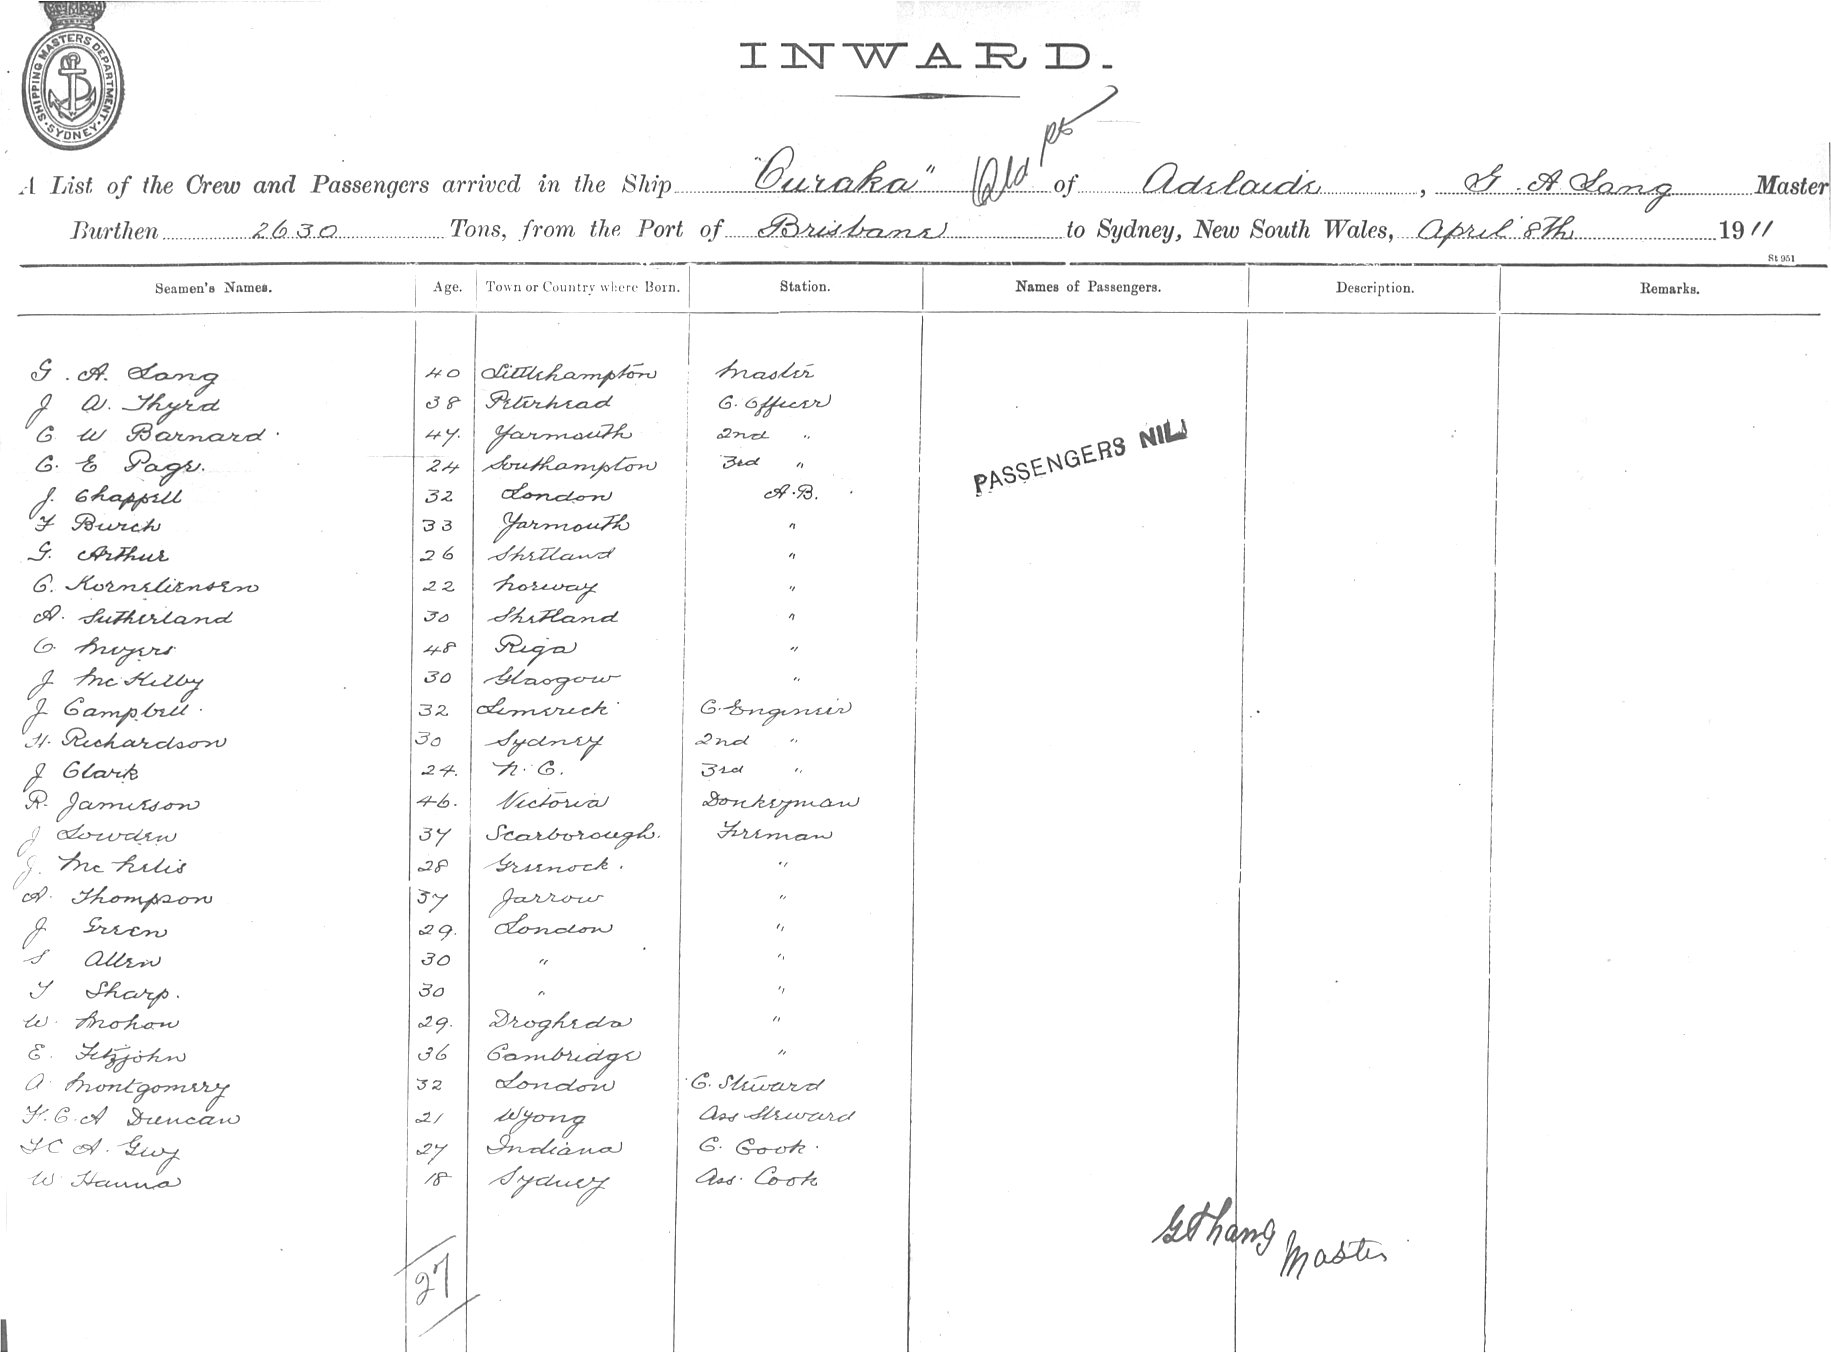 SHIPPING MASTERS DEPARTMENT. SYDNEY.
INWARD.
A List of the Crew and Passengers arrived in the Ship "Ouraka" Qld pt of Adelaide, G. A Lang Master
Burthen 2630 Tons, from the Port of Brisbane to Sydney, New South Wales, April 8th 1911
St 951
Seamen's Names. Age. Town or Country where Born. Station. Names of Passengers. Description. Remarks.
G. A. Lang 40 Littlehampton Master
J A. Thyrd 38 Peterhead C. Officer
C W Barnard 47. Yarmouth 2nd "
C. E Page. 24 Southampton 3rd "
PASSENGERS NIL
J. Chappell 32 London A.B.
F Burch 33 Yarmouth "
G. Arthur 26 Shetland "
C. Korneliensen 22 Norway "
A. Sutherland 30 Shetland "
C. Meyers 48 Riga "
J McKelby 30 Glasgow "
J Campbell 32 Limerick C. Engineer
H. Richardson 30 Sydney 2nd "
J Clark 24. N. C. 3rd "
R. Jamieson 46. Victoria Donkeyman
J Lowden 37 Scarborough. Fireman
J. McNelis 28 Greenock. "
A. Thompson 37 Jarrow "
J Green 29. London "
S Allen 30 " "
T Sharp. 30 " "
W. Mohon 29. Drogheda "
E. Fitzjohn 36 Cambridge "
A Montgomery 32 London C. Steward
F. C. A Duncan 21 Wyong Ass Steward
F C A. Guy 27 Indiana C. Cook.
W Hanna 18 Sydney Ass. Cook
GA Lang Master
27